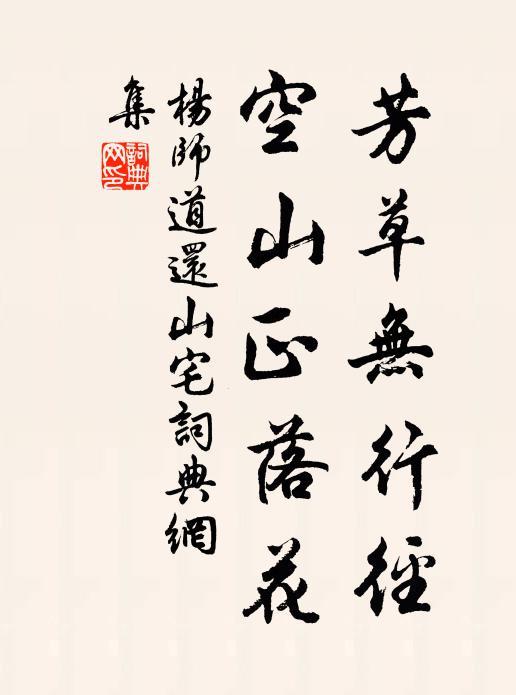 芳草無行徑
空山正落花
楊師道還山宅詞典網
集
詞典
网印